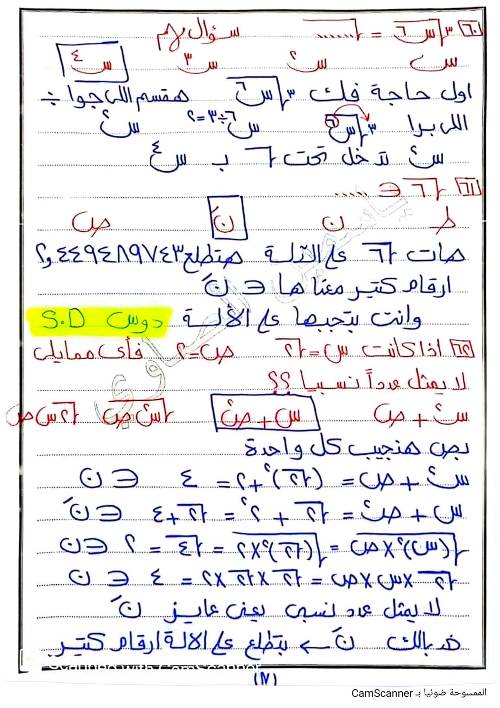 [٦٠] ٣√س٦ = √...... سؤال مهم
س س٢ س٣ س٤
اول حاجة فك ٣√س٦ هنقسم اللي جوا ÷
اللي برا ٣√س٦ س٦÷٣=٢ س٢
س٢ تدخل تحت √ بـ س٤
[٦١] √٦ ∈ ......
ط ن نَ ص
هات √٦ علي الآلة هتطلع ٢,٤٤٩٤٨٩٧٤٣
ارقام كتير معناها ∈ نَ
وانت بتجيبها علي الألة دوس S.D
[٦٢] اذا كانت س=√٢ ص=٢ فأى ممايلى
لا يمثل عدداً نسبيا ؟؟
س٢ + ص س + ص٢ √س٢ص √٢ س ص
بص هنجيب كل واحدة
س٢ + ص = (√٢)٢ + ٢ = ٤ ∈ ن
س + ص٢ = √٢ + ٢٢ = √٢ + ٤ ∈ نَ
√(س)٢×ص = √(√٢)٢×٢ = √٤ = ٢ ∈ ن
√٢×س×ص = √٢×√٢×٢ = ٤ ∈ ن
لا يمثل عدد نسبى يعنى عايز نَ
خد بالك نَ ← بتطلع علي الالة ارقام كتير
Scanned with CamScanner
(١٧)
الممسوحة ضوئيا بـ CamScanner